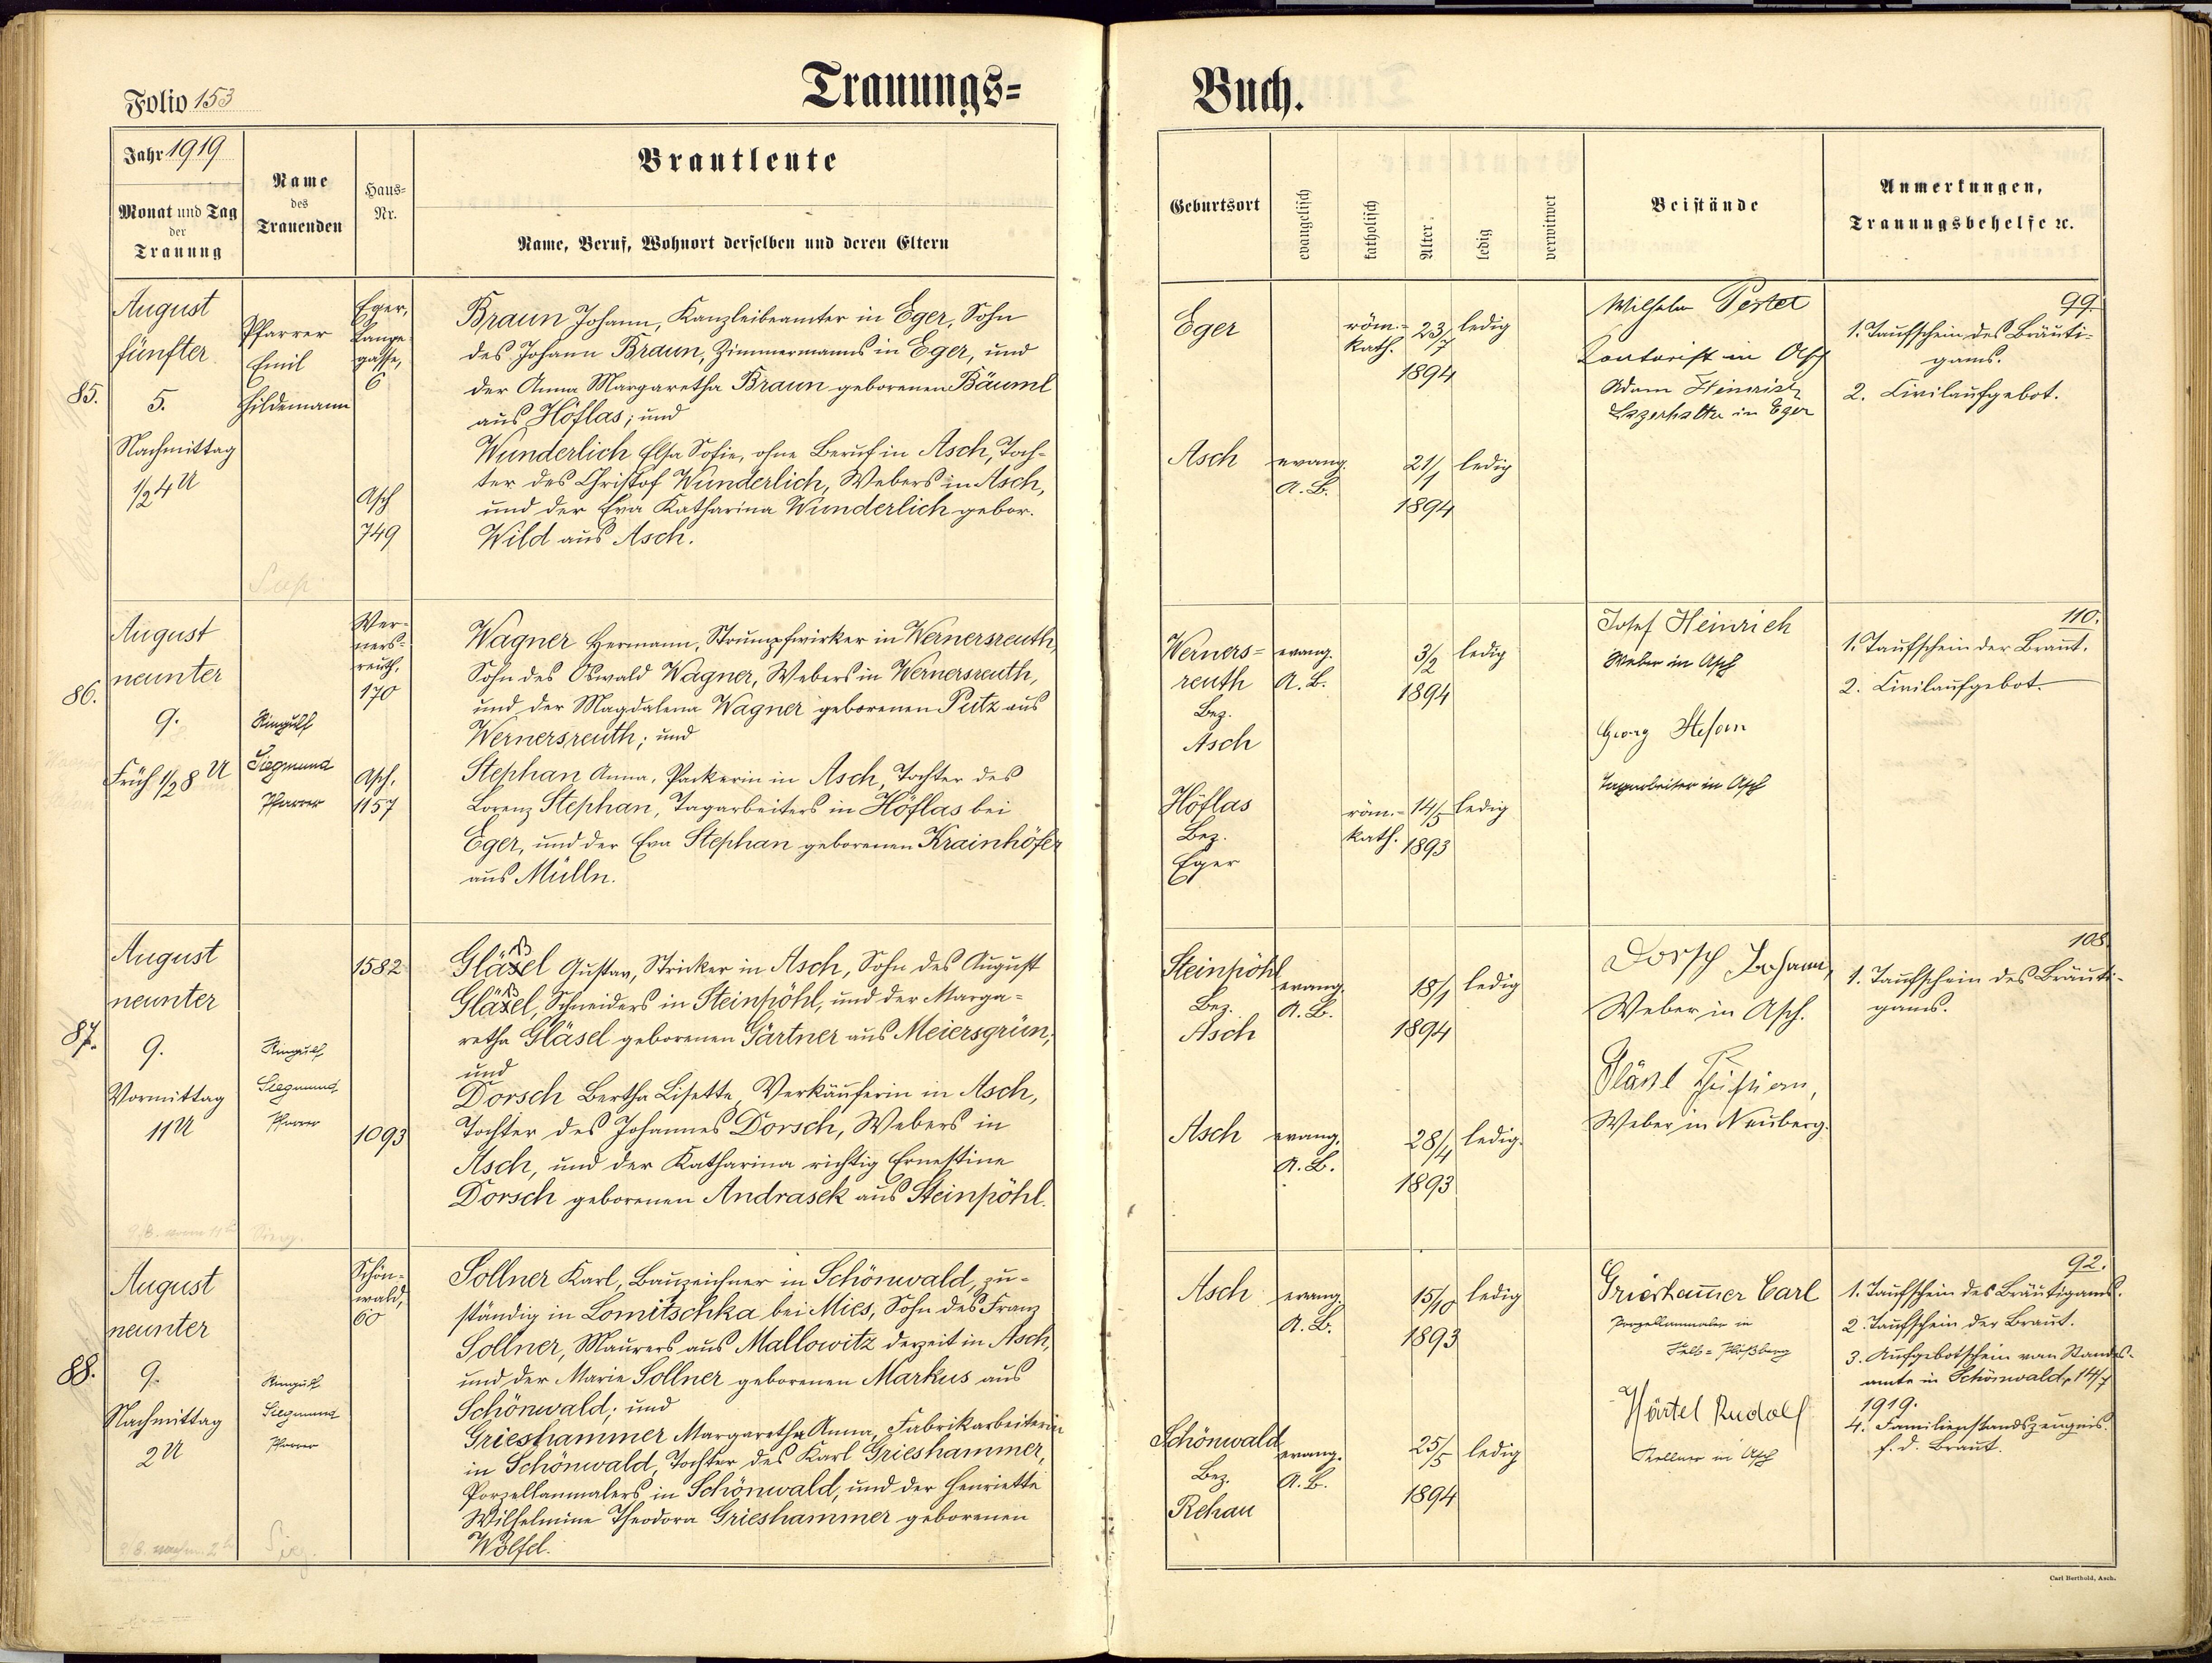 Trauungs=
Buch.
Folio 153
Jahr 1919
Monat und Tag
der
Trauung
Name
des
Trauenden
Haus=
Nr.
Brautleute
Name, Beruf, Wohnort derselben und deren Eltern
Geburtsort
evangelisch
katholisch
Alter
ledig
verwitwet
Beistände
Anmerkungen,
Trauungsbehelfe ꝛc.
85.
August
fünfter
5.
Nachmittag
1/2 4 U
Pfarrer
Emil
Hildemann
Eger,
Lange
gasse,
6
Asch
749
Braun Johann, Kanzleibeamter in Eger, Sohn
des Johann Braun, Zimmermanns in Eger, und
der Anna Margaretha Braun geborenen Bäuml
aus Höflas; und
Wunderlich Elsa Sofie, ohne Beruf in Asch, Toch-
ter des Christof Wunderlich, Webers in Asch,
und der Eva Katharina Wunderlich gebor.
Wild aus Asch.
Eger
röm.-
kath.
23/7
1894
ledig
Asch
evang.
A. B.
21/1
1894
ledig
Wilhelm Pestel
Kontorist in Asch
Adam Heinrich
Lagerhalter in Eger
99.
1. Taufschein des Bräuti-
gams.
2. Civilaufgebot.
86.
August
neunter
9.
Früh 1/2 8 U
Ringulf
Siegmund
Pfarrer
Wer-
ners-
reuth,
170
Asch,
1157
Wagner Hermann, Strumpfwirker in Wernersreuth,
Sohn des Oswald Wagner, Webers in Wernersreuth,
und der Magdalena Wagner geborenen Putz aus
Wernersreuth; und
Stephan Anna, Packerin in Asch, Tochter des
Lorenz Stephan, Tagarbeiters in Höflas bei
Eger, und der Eva Stephan geborenen Krainhöfer
aus Mülln.
Werners=
reuth
Bez.
Asch
evang.
A. B.
3/2
1894
ledig
Höflas
Bez.
Eger
röm.-
kath.
14/5
1893
ledig
Josef Heinrich
Weber in Asch
Georg Stefan
Tagarbeiter in Asch
110.
1. Taufschein der Braut.
2. Civilaufgebot.
87.
August
neunter
9.
Vormittag
11 U
Ringulf
Siegmund
Pfarrer
1582
1093
ß
Gläsel Gustav, Stricker in Asch, Sohn des August
ß
Gläsel, Schneiders in Steinpöhl, und der Marga-
retha Gläsel geborenen Gärtner aus Meiersgrün;
und
Dorsch Bertha Lisette, Verkäuferin in Asch,
Tochter des Johannes Dorsch, Webers in
Asch, und der Katharina richtig Ernestine
Dorsch geborenen Andrasek aus Steinpöhl.
Steinpöhl
Bez.
Asch
evang.
A. B.
18/1
1894
ledig
Asch
evang.
A. B.
28/4
1893
ledig.
Dorsch Johann,
Weber in Asch.
Weber in Neuberg.
108.
1. Taufschein des Bräuti-
gams.
88.
August
neunter
9.
Nachmittag
2 U
Ringulf
Siegmund
Pfarrer
Schön-
wald,
60
Sollner Karl, Bauzeichner in Schönwald, zu-
ständig in Lomitschka bei Mies, Sohn des Franz
Sollner, Maurers aus Mallowitz derzeit in Asch,
und der Marie Sollner geborenen Markus aus
Schönwald; und
Grieshammer Margaretha Anna, Fabrikarbeiterin
in Schönwald, Tochter des Karl Grieshammer,
Porzellanmalers in Schönwald, und der Henriette
Wilhelmine Theodora Grieshammer geborenen
Wölfel.
Asch
evang.
A. B.
15/10
1893
ledig
Schönwald
Bez.
Rehau
evang.
A. B.
25/5
1894
ledig
Grieshammer Carl
Porzellanmaler in
Selb=Plößberg
Härtel Rudolf
Kellner in Asch
92.
1. Taufschein des Bräutigams.
2. Taufschein der Braut.
3. Aufgebotschein vom Standes-
amte in Schönwald, 14/7
1919.
4. Familienstandszeugnis.
f. d. Braut.
Carl Berthold, Asch.